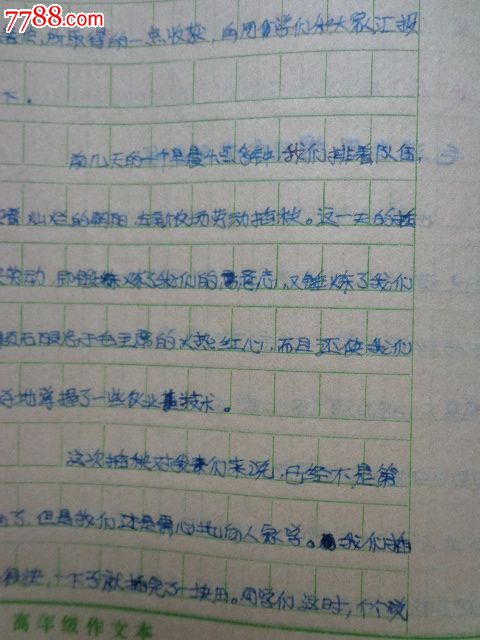 7788.com
所取得的一点收获,向同学们和大家汇报
下.
前几天的一个早晨七点多钟,我们排着队伍,
着灿烂的朝阳,去新农场劳动插秧。这一天的插
劳动,即锻炼了我们的意志,又锤炼了我们
无限忠于毛主席的火热红心,而且还使我们
地掌握了一些农业基技术。
这次插秧对我们来说,已经不是第
了,但是我们还是虚心地向人家学。我们插
很快,一下子就插完了一块田。同学们这时,个个
高年级作文本